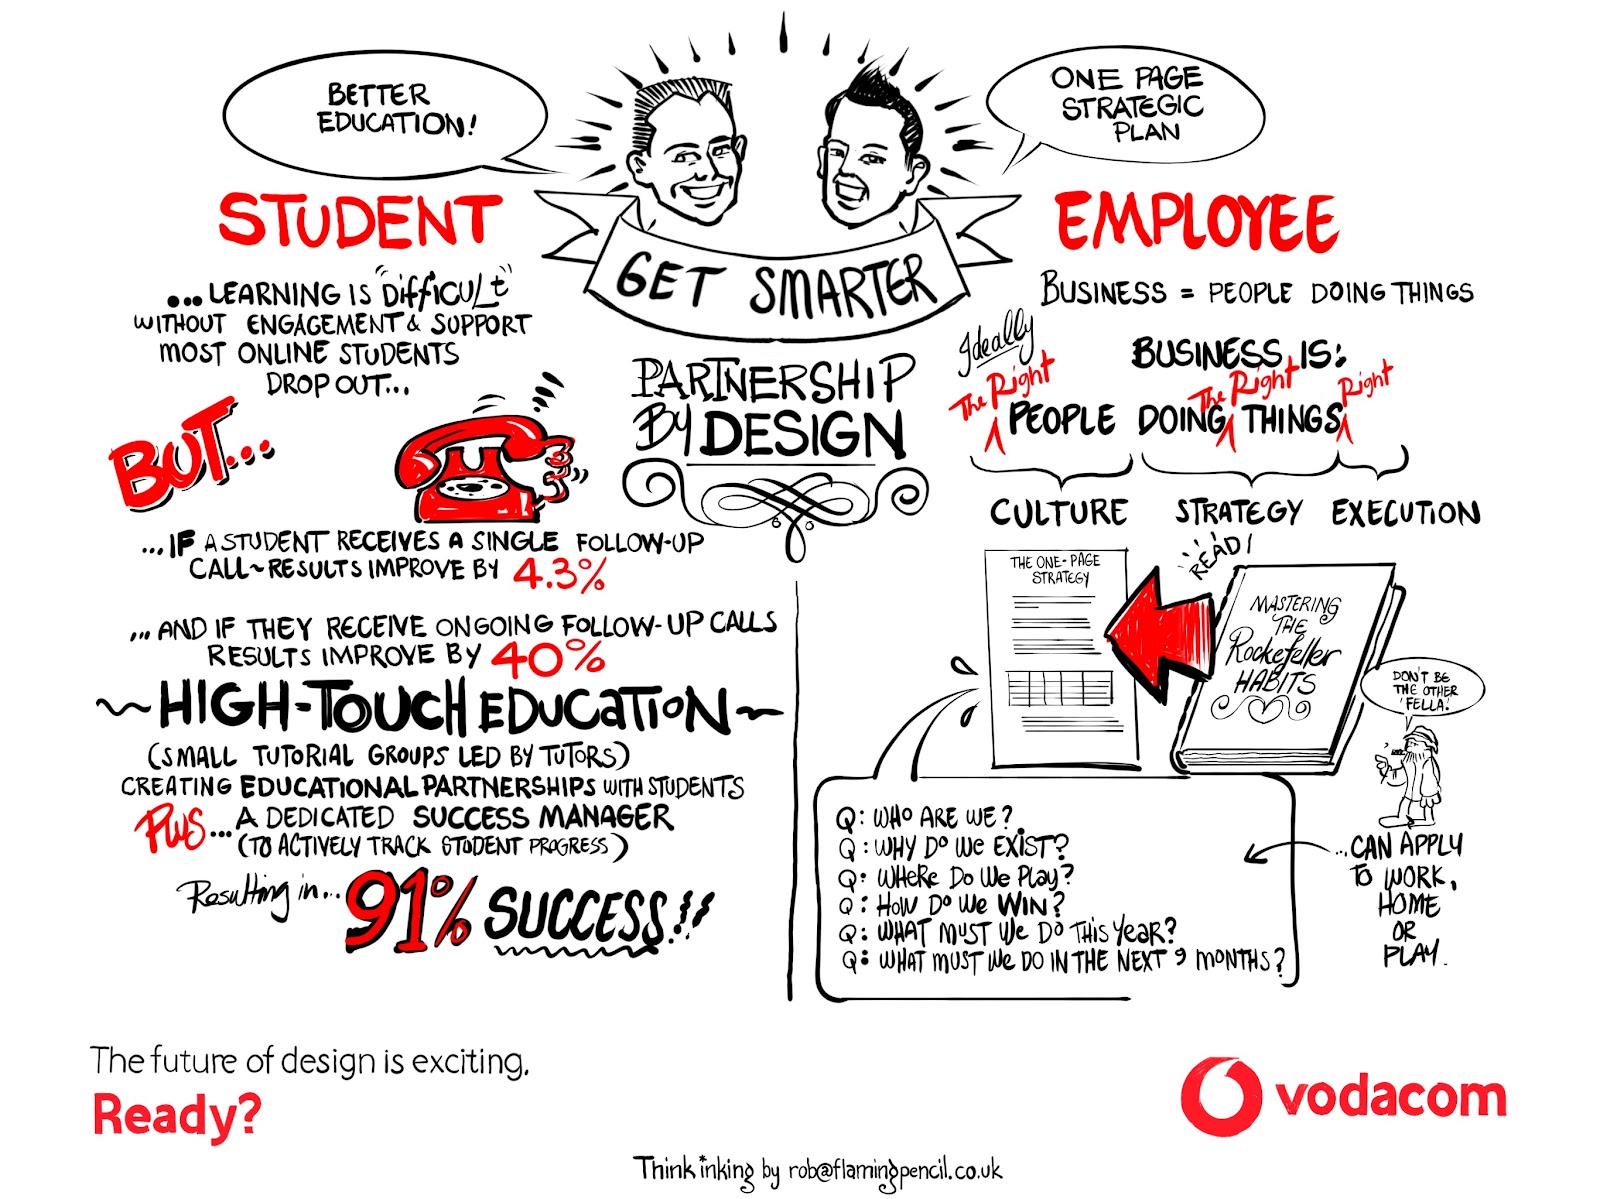 BETTER
EDUCATION!
ONE PAGE
STRATEGIC
PLAN
GET SMARTER
PARTNERSHIP
By DESIGN
STUDENT
...LEARNING IS "Difficult"
WITHOUT ENGAGEMENT & SUPPORT
MOST ONLINE STUDENTS
DROP OUT...
BUT...
...IF A STUDENT RECEIVES A SINGLE FOLLOW-UP
CALL~RESULTS IMPROVE BY 4.3%
...AND IF THEY RECEIVE ONGOING FOLLOW-UP CALLS
RESULTS IMPROVE BY 40%
~HIGH-TOUCH EDUCATION~
(SMALL TUTORIAL GROUPS LED BY TUTORS)
CREATING EDUCATIONAL PARTNERSHIPS WITH STUDENTS
PLUS...A DEDICATED SUCCESS MANAGER
(TO ACTIVELY TRACK STUDENT PROGRESS)
Resulting in... 91% SUCCESS!!
EMPLOYEE
BUSINESS = PEOPLE DOING THINGS
Ideally
BUSINESS IS:
The Right PEOPLE DOING The Right THINGS Right
CULTURE STRATEGY EXECUTION
THE ONE-PAGE
STRATEGY
READ!
MASTERING
THE
Rockefeller
HABITS
DON'T BE
THE OTHER
'FELLA.'
Q: WHO ARE WE?
Q: WHY DO WE EXIST?
Q: WHERE DO WE PLAY?
Q: HOW DO WE WIN?
Q: WHAT MUST WE DO THIS YEAR?
Q: WHAT MUST WE DO IN THE NEXT 9 MONTHS?
...CAN APPLY
TO WORK,
HOME
OR
PLAY.
The future of design is exciting.
Ready?
vodacom
Think*inking by rob@flamingpencil.co.uk